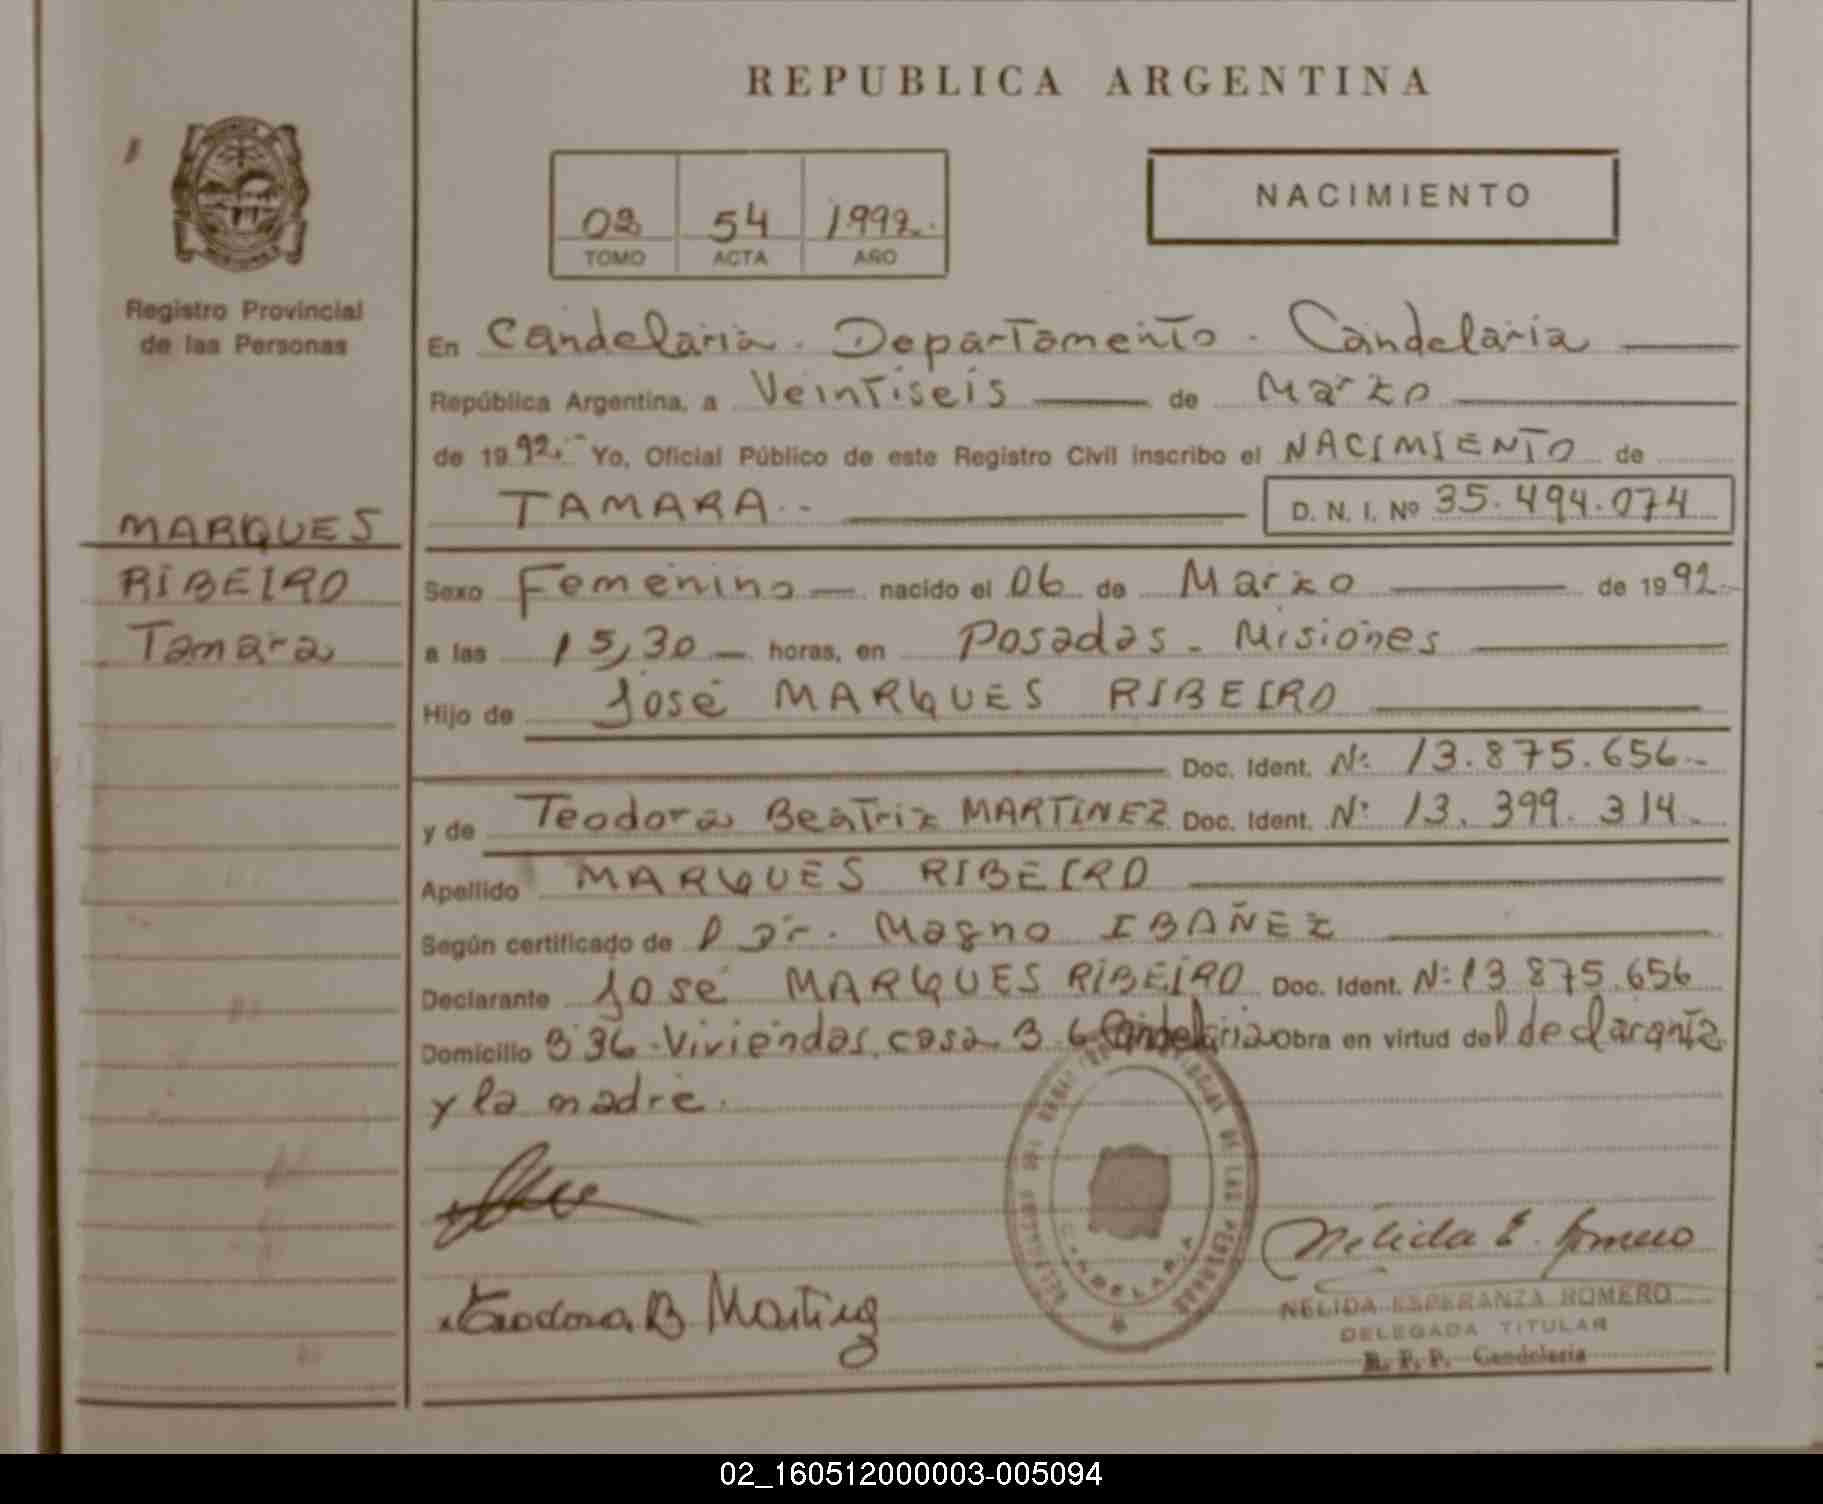 REPUBLICA ARGENTINA
NACIMIENTO
02 54 1992.
TOMO ACTA AÑO
Registro Provincial
de las Personas
MARQUES
RIBEIRO
Tamara
En Candelaria. Departamento. Candelaria
República Argentina, a Veintiseis de Marzo
de 1992.- Yo, Oficial Público de este Registro Civil inscribo el NACIMIENTO de
TAMARA.- D. N. I. Nº 35.494.074
Sexo Femenino nacido el 06 de Marzo de 1992.-
a las 15,30 horas, en Posadas - Misiones
Hijo de José MARQUES RIBEIRO
Doc. Ident. Nº 13.875.656.-
y de Teodora Beatriz MARTINEZ Doc. Ident. Nº 13.399.314.
Apellido MARQUES RIBEIRO
Según certificado de Dr. Magno IBAÑEZ
Declarante José MARQUES RIBEIRO Doc. Ident. Nº 13.875.656
Domicilio 336 Viviendas, casa 3 Candelaria Obra en virtud del declarante
y la madre.
Teodora B Martinez
Nélida E. Romero
NELIDA ESPERANZA ROMERO
DELEGADA TITULAR
R. P. P. Candelaria
CANDELARIA
02_160512000003-005094